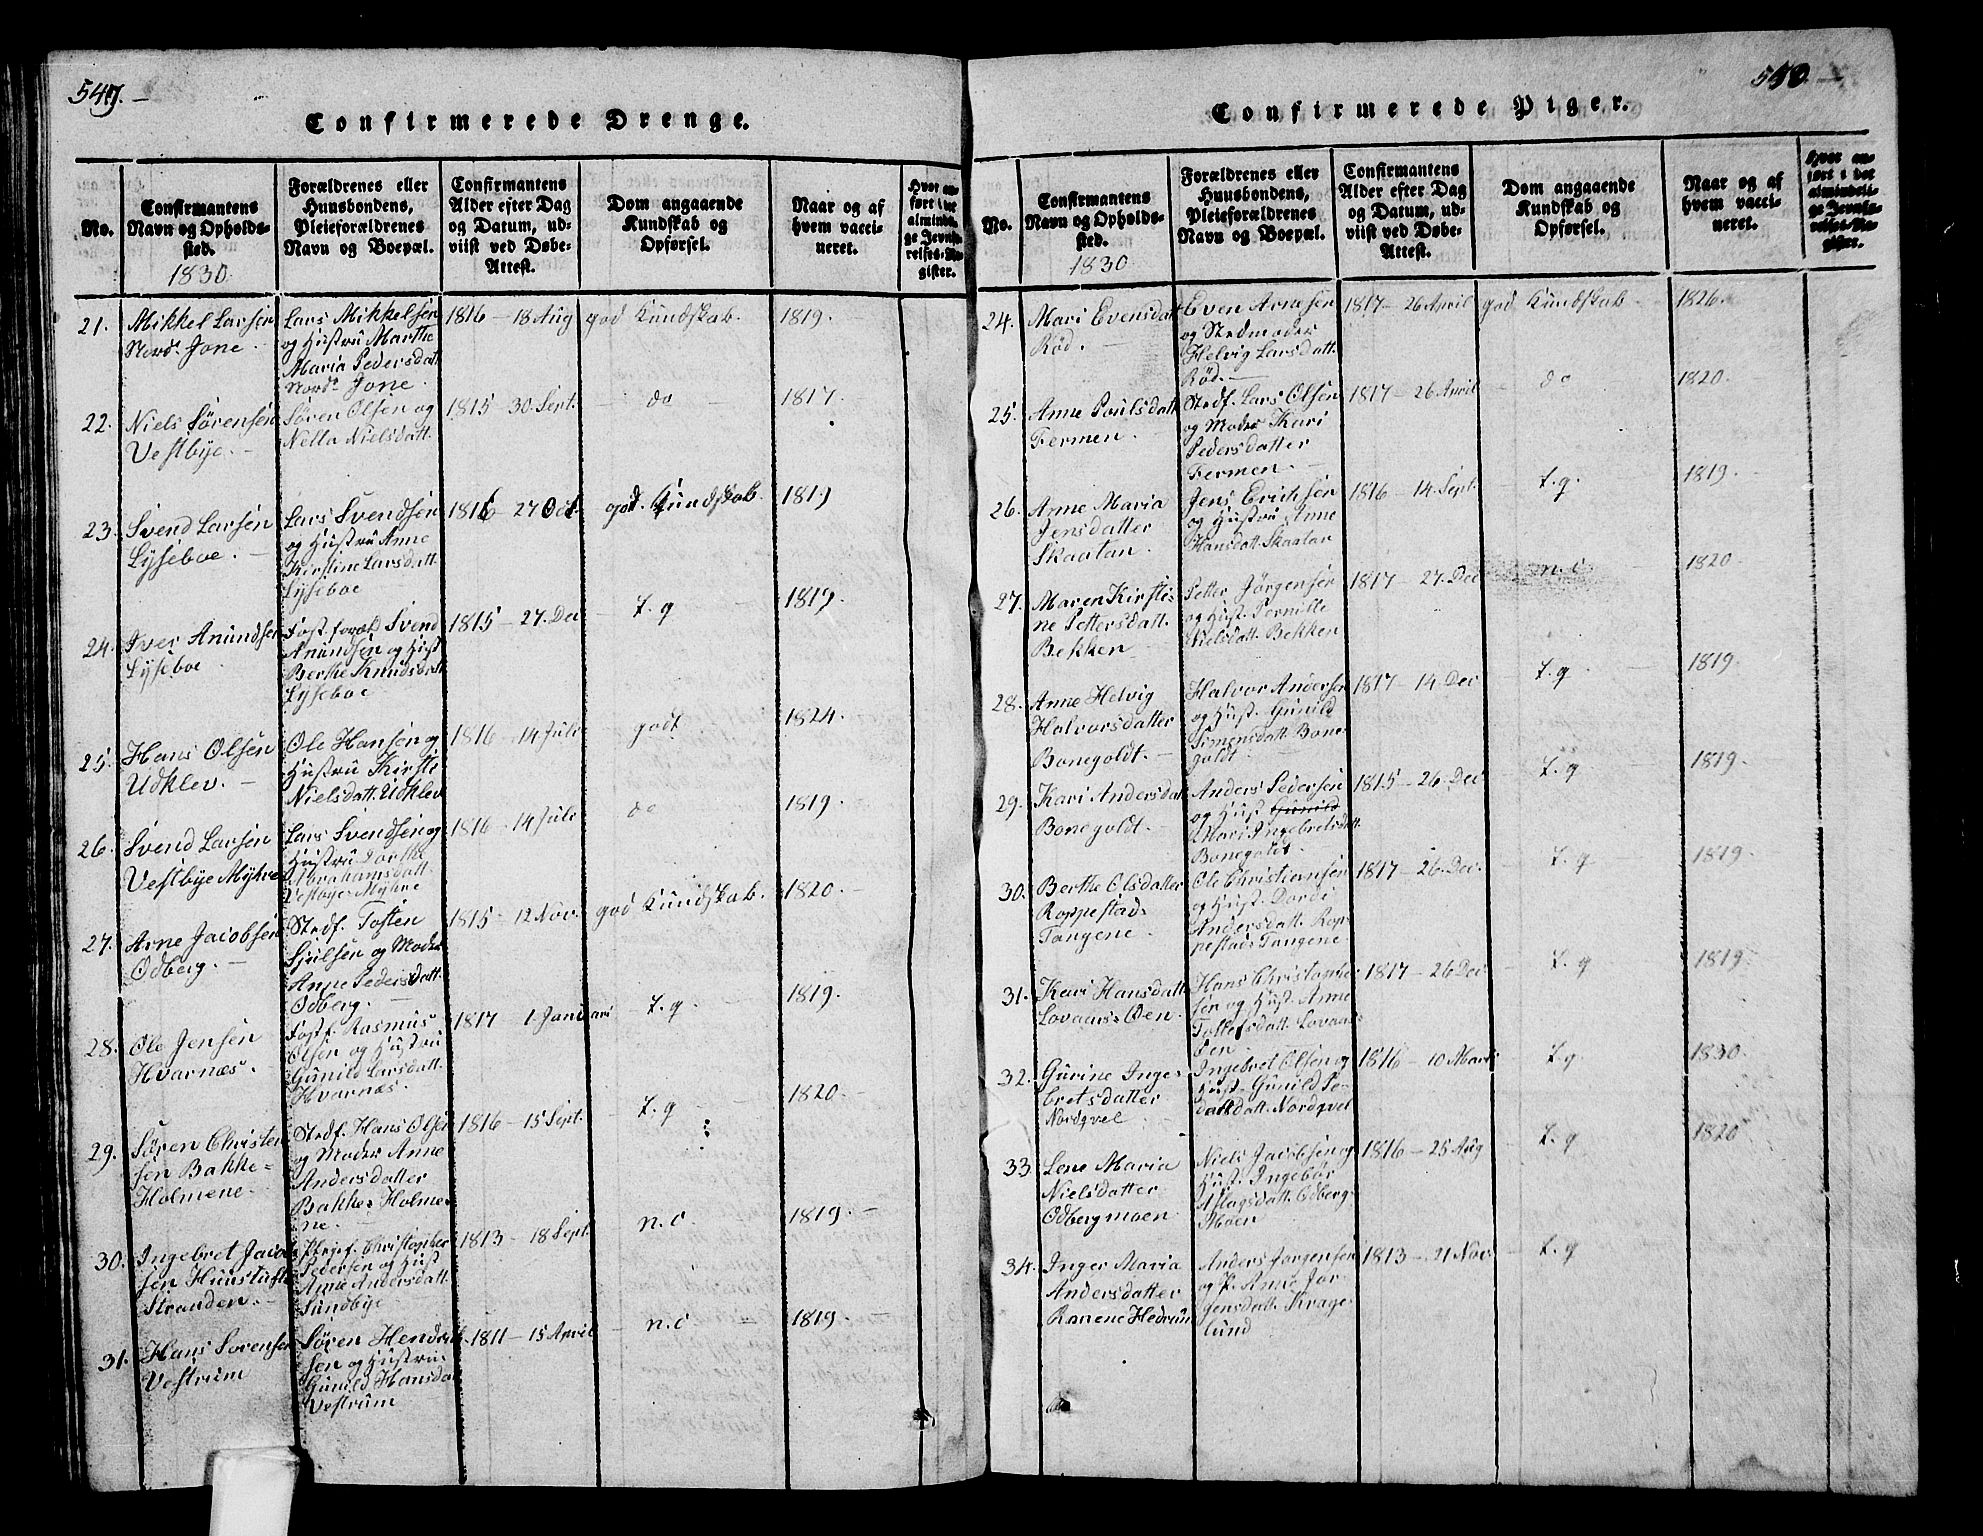 549.
Confirmerede Drenge.
No.
Confirmantens
Navn og Opholds-
sted.
1830.
Forældrenes eller
Huusbondens,
Pleieforældrenes
Navn og Boepæl.
Confirmantens
Alder efter Dag
og Datum, ud-
viist ved Døbe-
Attest.
Dom angaaende
Kundskab og
Opførsel.
Naar og af
hvem vacci-
neret.
Hvor an-
ført i det
alminde-
ge Jevnfø-
relses-Re-
gister.
21.
Mikkel Larsen
Nordr Jone.
Lars Mikkelsen
og Hustru Marthe
Maria Pedersdatt.
Nordr Jone.
1816 - 18 Aug
god Kundskab.
1819.
22.
Niels Sørensen
Vestbye.
Søren Olsen og
Nella Nielsdatt.
1815 - 30 Sept.
do
1817.
23.
Svend Larsen
Lyseboe.
Lars Svendsen
og Hustru Anne
Kirstine Larsdatt.
Lyseboe
1816 - 27 Oct.
god. Kundskab.
1819
24.
Iver Anundsen
Lyseboe
Fost.foræld Svend
Anundsen og Hust
Berthe Knudsdatt
Lyseboe
1815 - 27. Dec
t. g
1819.
25.
Hans Olsen
Udklev.
Ole Hansen og
Hustru Kirsti
Nielsdatt. Udklev
1816 - 14 Juli
godt
1824.
26.
Svend Larsen
Vestbye Myhre
Lars Svendsen og
Hustru Dorthe
Abrahamsdatt.
Vestbye Myhre
1816 - 14 Juli
do
1819.
27.
Arne Jacobsen
Odberg.
Stedf. Tosten
Sjulsen og Moder
Anne Pedersdatt.
Odberg.
1815 - 12 Nov.
god Kundskab.
1820.
28.
Ole Jensen
Hvarnæs.
Fostf. Rasmus
Olsen og Hustru
Gunild Larsdatt.
Hvarnæs.
1817 - 1. Januari
t. g.
1819.
29.
Søren Christen
sen Bakke=
Holmene.
Stedf. Hans Olsen
og Moder Anne
Andersdatter
Bakke= Holme=
ne.
1816 - 15 Sept.
t. g
1820.
30.
Ingebret Jacob
sen
Stranden.
Pleief. Christopher
Pedersen og Hust
Anne Andersdatt.
Sundbye
1813 - 18 Sept.
n. c.
1819.
31.
Hans Sorensen
Vestrum
Søren Hendrik
sen og Hustru
Gunild Hansdat
Vestrum
1811 - 15 April
n. c
1819.
550.
Confirmerede Piger.
No.
Confirmantens
Navn og Opholds-
sted.
1830
Forældrenes eller
Huusbondens,
Pleieforældrenes
Navn og Boepæl.
Confirmantens
Alder efter Dag
og Datum, ud-
viist ved Døbe-
Attest.
Dom angaaende
Kundskab og
Opførsel.
Naar og af
hvem vacci-
neret.
Hvor an-
ført i det
almindeli-
ge Jevnfø-
relses-Re-
gister.
24.
Mari Evensdatt
Rød.
Even Arnesen
og Stedmoder
Helvig Larsdatt.
Rød.
1817 - 26 April
god Kundskab
1826.
25.
Anne Poulsdatt
Fermen.
Stedf. Lars Olsen
og Moder Kari
Pedersdatter
Fermen.
1817 - 26 April
do
1820.
26.
Anne Maria
Jensdatter
Skaatan.
Jens Erichsen
og Hustru Anne
Hansdatt. Skaatan
1816 - 14. Sept.
t. g.
1819.
27.
Maren Kirsti=
ne Pettersdatt.
Bekken
Petter Jørgensen
og Hust. Pernille
Nielsdatt. Bekken
1817 - 27. Dec
n. c.
1820
28.
Anne Helvig
Halvorsdatter
Bonegoldt.
Halvor Andersen
og Hust. Gunild
Simensdatt. Bone
goldt.
1817 - 14. Dec
t. g
1819.
29.
Kari Andersdat
Bonegoldt.
Anders Pedersen
og Hust Gunild
Mari Ingebretsdatt.
Bonegoldt
1815 - 26. Dec
t. g
1819.
30.
Berthe Olsdatter
Roppestad=
Tangene.
Ole Christiansen
og Hust. Dordi
Andersdatt. Rop=
pestad= Tangene
1817 - 26. Dec.
t. g
1819.
31.
Kari Hansdatt.
Lovaas= Øen
Hans Christophe
sen og Hust. Anne
Tollefsdatt. Lovaas=
Øen
1817 - 26 Dec
t. g
1819.
32.
Gurine Inge=
bretsdatter
Nordqvel
Ingebret Olsen og
Hust. Gunild Pe=
dersdatt. Nordqvel
1816 - 10 Marts
t. g
1830.
33
Lene Maria
Nielsdatter
Odbergmoen
Niels Jacobsen og
Hust. Ingebør
Aslagsdatt. Odberg-
Moen
1816 - 25 Aug
t. g
1820
34.
Inger Maria
Andersdatter
Ranene Hedrum
Anders Jørgensen
og P. Anne Jør=
gensdatt. Krage=
lund
1813 - 21 Nov.
t. g